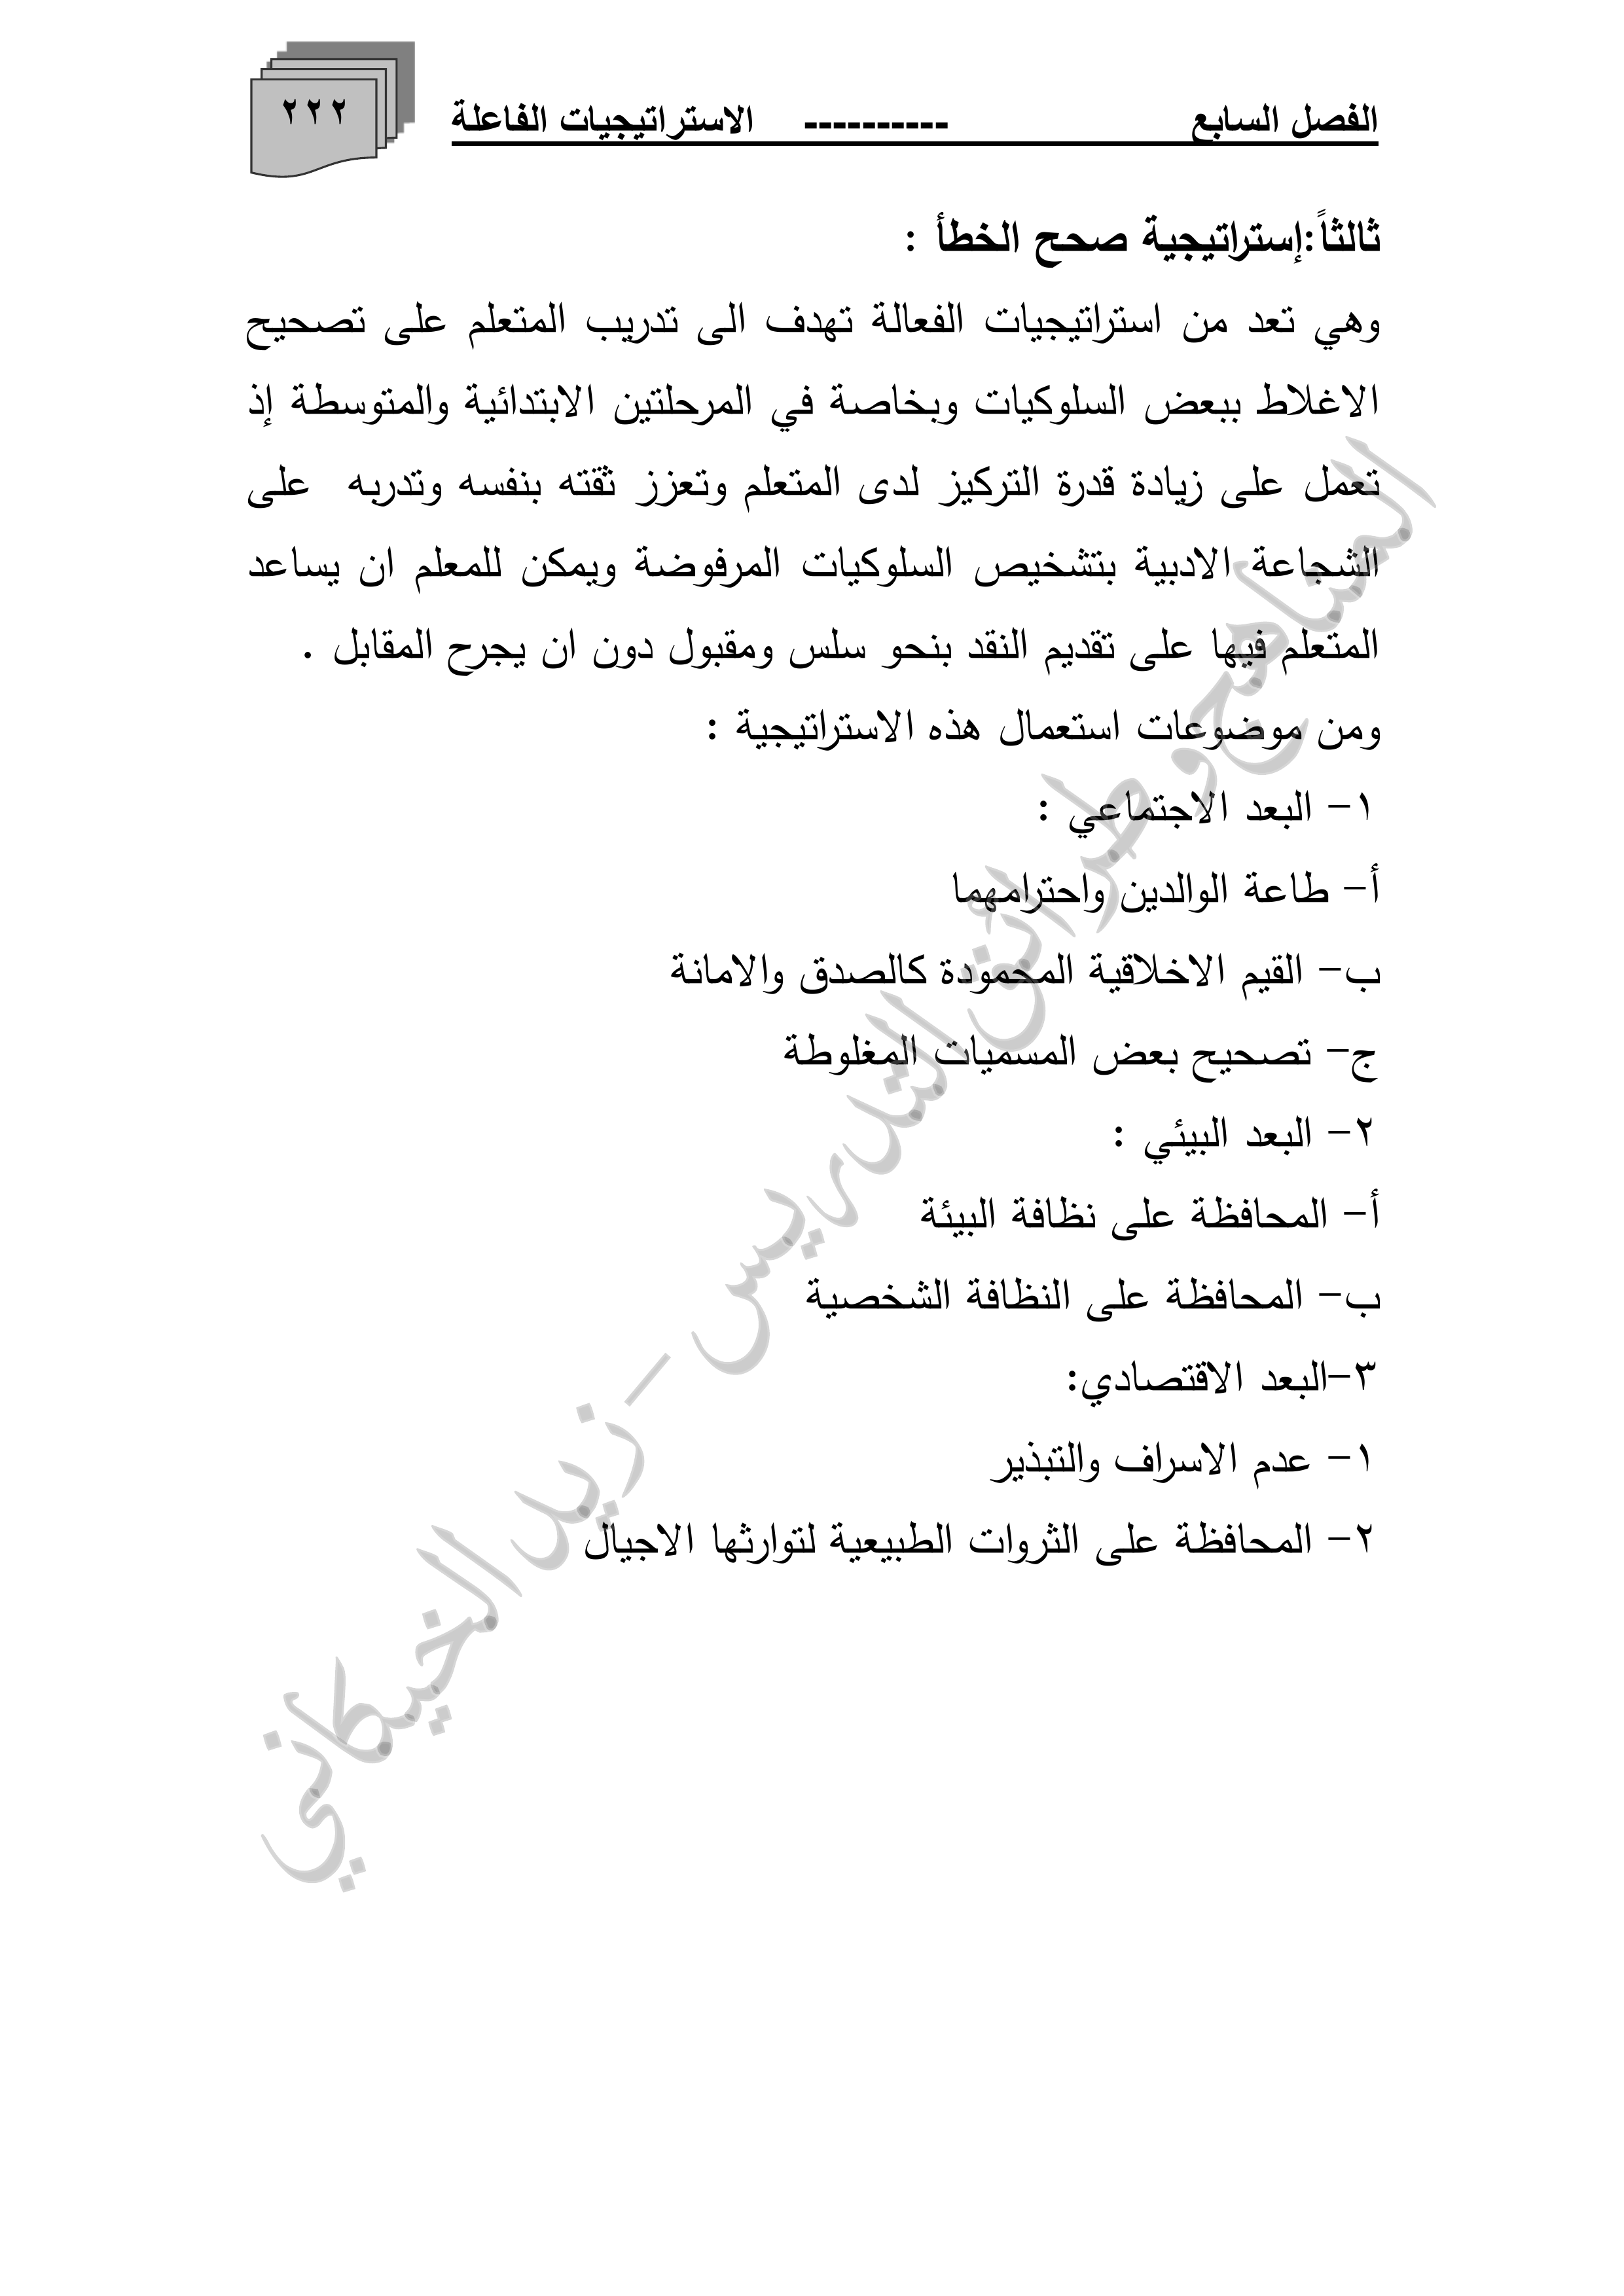 الفصل السابع ---------- الاستراتيجيات الفاعلة
٢٢٢
ثالثاً:إستراتيجية صحح الخطأ :
وهي تعد من استراتيجيات الفعالة تهدف الى تدريب المتعلم على تصحيح
الاغلاط ببعض السلوكيات وبخاصة في المرحلتين الابتدائية والمتوسطة إذ
تعمل على زيادة قدرة التركيز لدى المتعلم وتعزز ثقته بنفسه وتدربه على
الشجاعة الادبية بتشخيص السلوكيات المرفوضة ويمكن للمعلم ان يساعد
المتعلم فيها على تقديم النقد بنحو سلس ومقبول دون ان يجرح المقابل .
ومن موضوعات استعمال هذه الاستراتيجية :
١- البعد الاجتماعي :
أ- طاعة الوالدين واحترامهما
ب- القيم الاخلاقية المحمودة كالصدق والامانة
ج- تصحيح بعض المسميات المغلوطة
٢- البعد البيئي :
أ- المحافظة على نظافة البيئة
ب- المحافظة على النظافة الشخصية
٣-البعد الاقتصادي:
١- عدم الاسراف والتبذير
٢- المحافظة على الثروات الطبيعية لتوارثها الاجيال
المناهج وطرائق التدريس - زيد الخيكاني